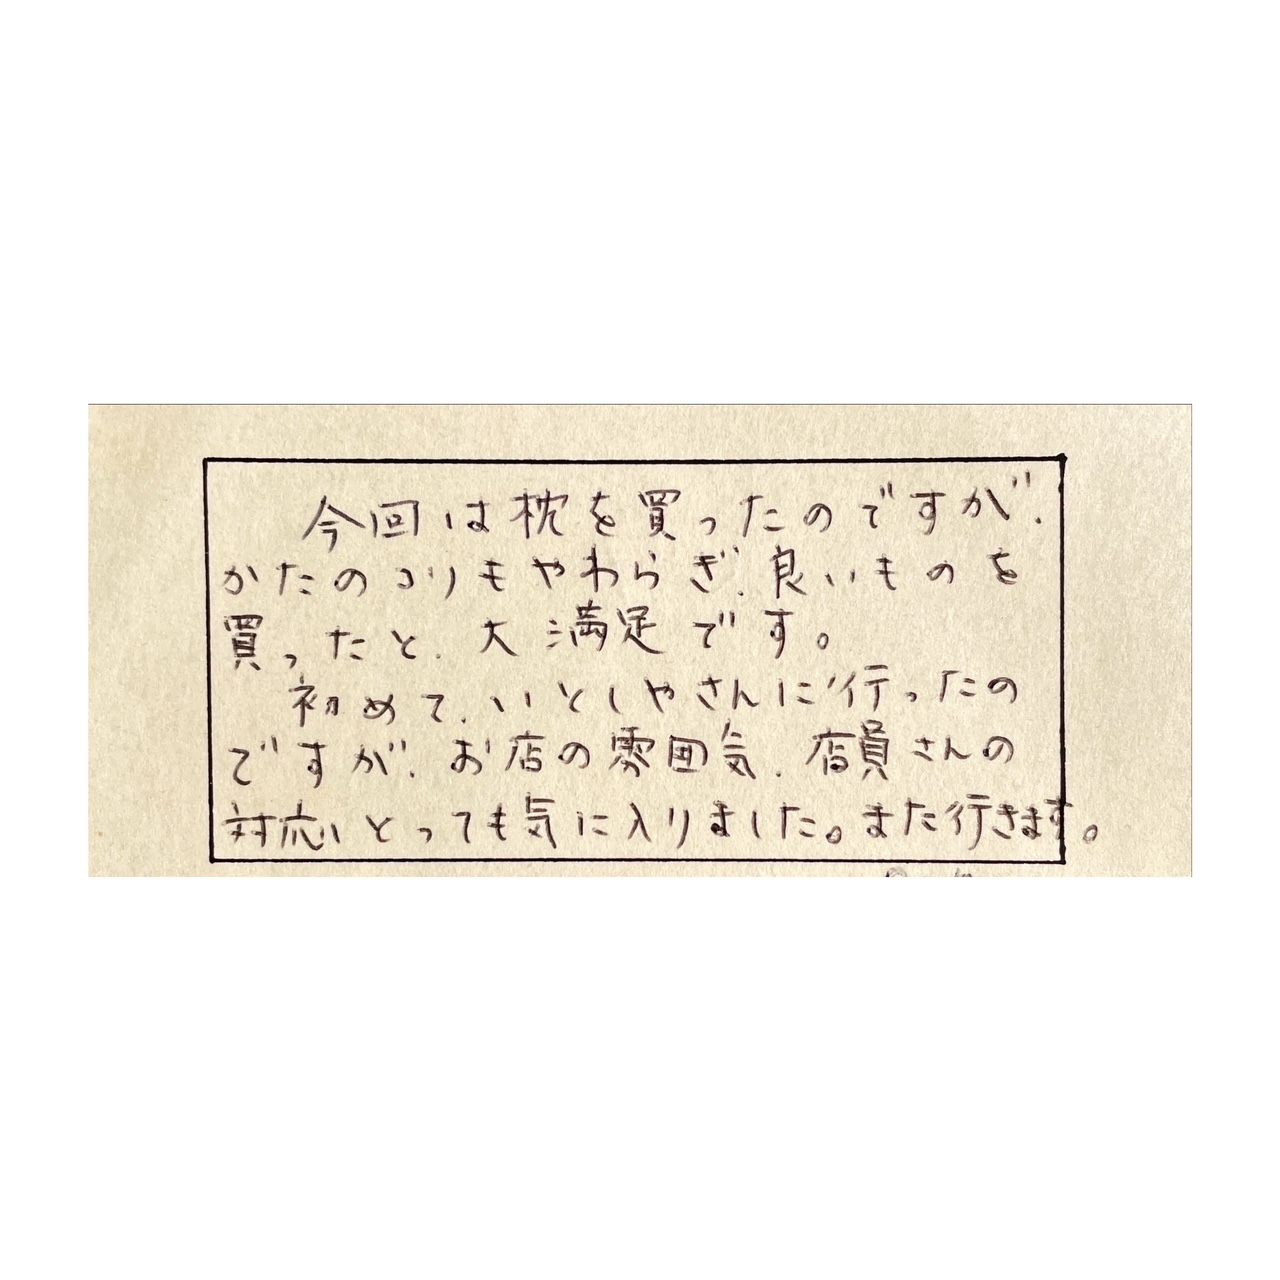 今回は枕を買ったのですが、
かたのコリもやわらぎ、良いものを
買ったと、大満足です。
初めて、いとしやさんに行ったの
ですが、お店の雰囲気、店員さんの
対応とっても気に入りました。また行きます。